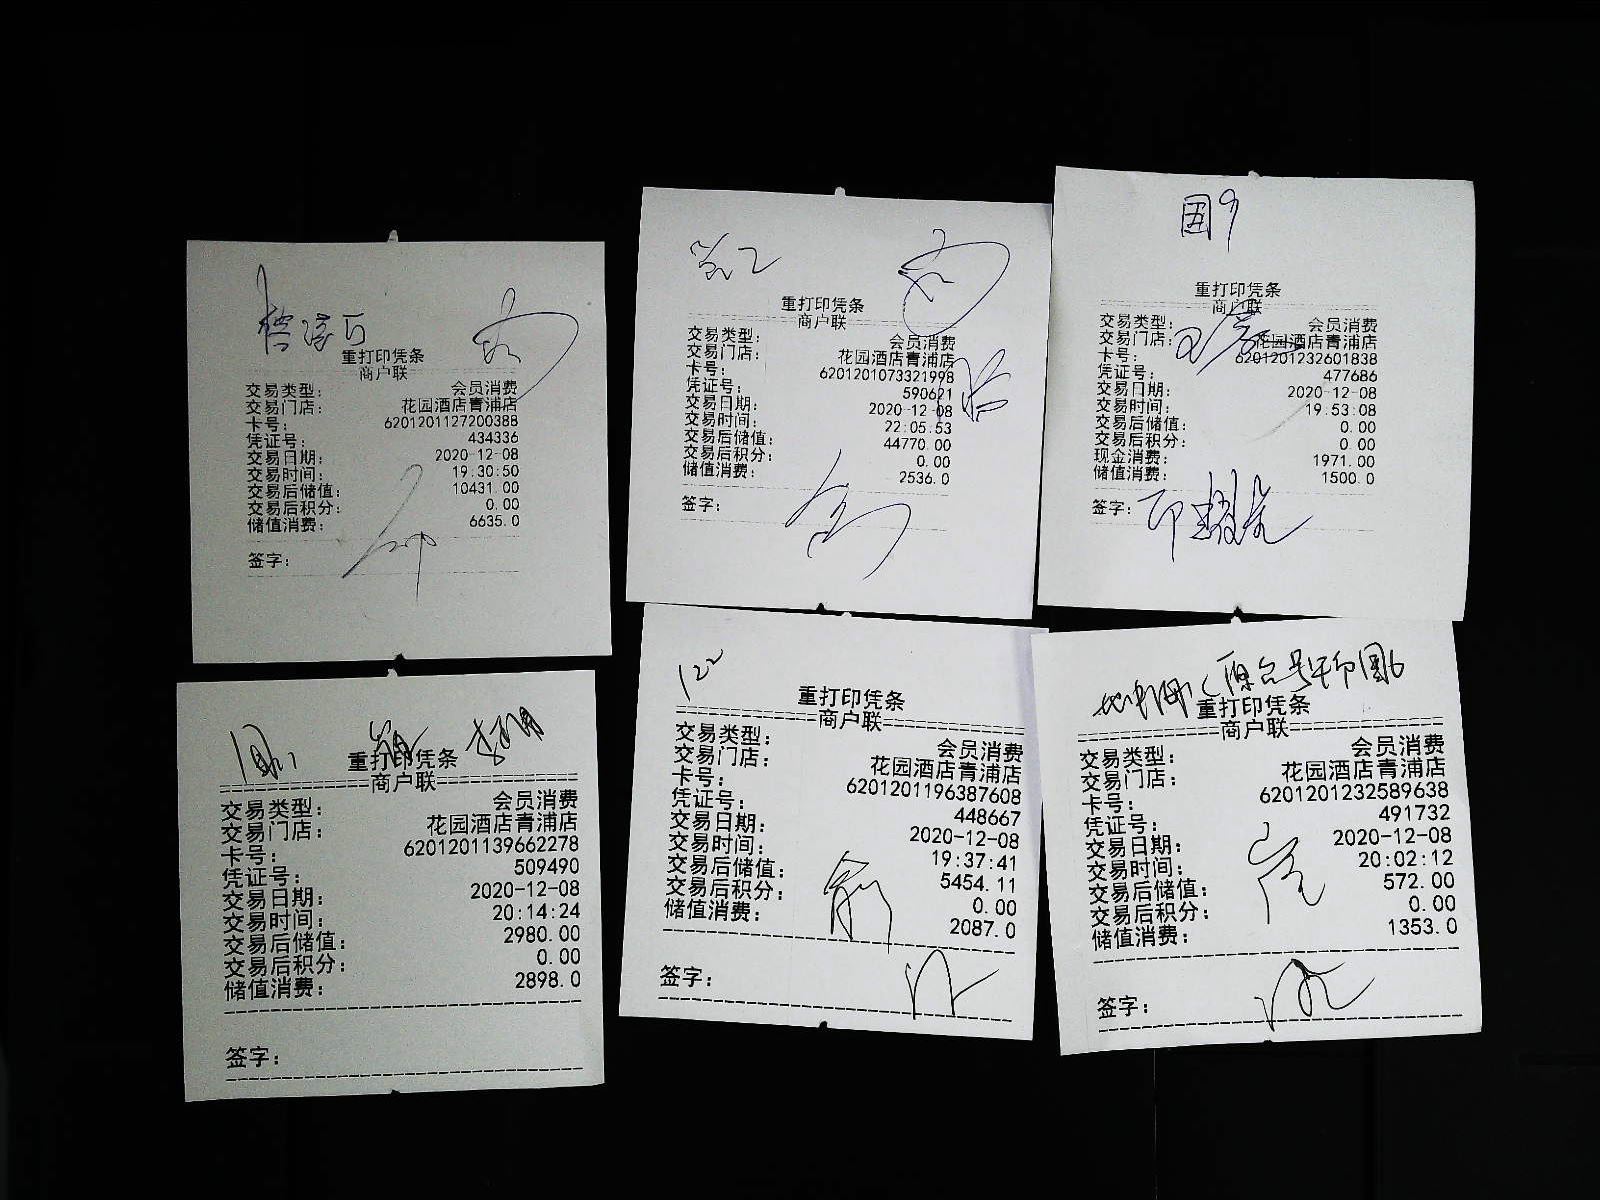 重打印凭条
商户联
交易类型: 会员消费
交易门店: 花园酒店青浦店
卡号: 6201201127200388
凭证号: 434336
交易日期: 2020-12-08
交易时间: 19:30:50
交易后储值: 10431.00
交易后积分: 0.00
储值消费: 6635.0
签字:
重打印凭条
商户联
交易类型: 会员消费
交易门店: 花园酒店青浦店
卡号: 6201201073321998
凭证号: 590621
交易日期: 2020-12-08
交易时间: 22:05:53
交易后储值: 44770.00
交易后积分: 0.00
储值消费: 2536.0
签字:
重打印凭条
商户联
交易类型: 会员消费
交易门店: 花园酒店青浦店
卡号: 6201201232601838
凭证号: 477686
交易日期: 2020-12-08
交易时间: 19:53:08
交易后储值: 0.00
交易后积分: 0.00
现金消费: 1971.00
储值消费: 1500.0
签字:
重打印凭条
商户联
交易类型: 会员消费
交易门店: 花园酒店青浦店
卡号: 6201201139662278
凭证号: 509490
交易日期: 2020-12-08
交易时间: 20:14:24
交易后储值: 2980.00
交易后积分: 0.00
储值消费: 2898.0
签字:
122
重打印凭条
商户联
交易类型: 会员消费
交易门店: 花园酒店青浦店
卡号: 6201201196387608
凭证号: 448667
交易日期: 2020-12-08
交易时间: 19:37:41
交易后储值: 5454.11
交易后积分: 0.00
储值消费: 2087.0
签字:
重打印凭条
商户联
交易类型: 会员消费
交易门店: 花园酒店青浦店
卡号: 6201201232589638
凭证号: 491732
交易日期: 2020-12-08
交易时间: 20:02:12
交易后储值: 572.00
交易后积分: 0.00
储值消费: 1353.0
签字: